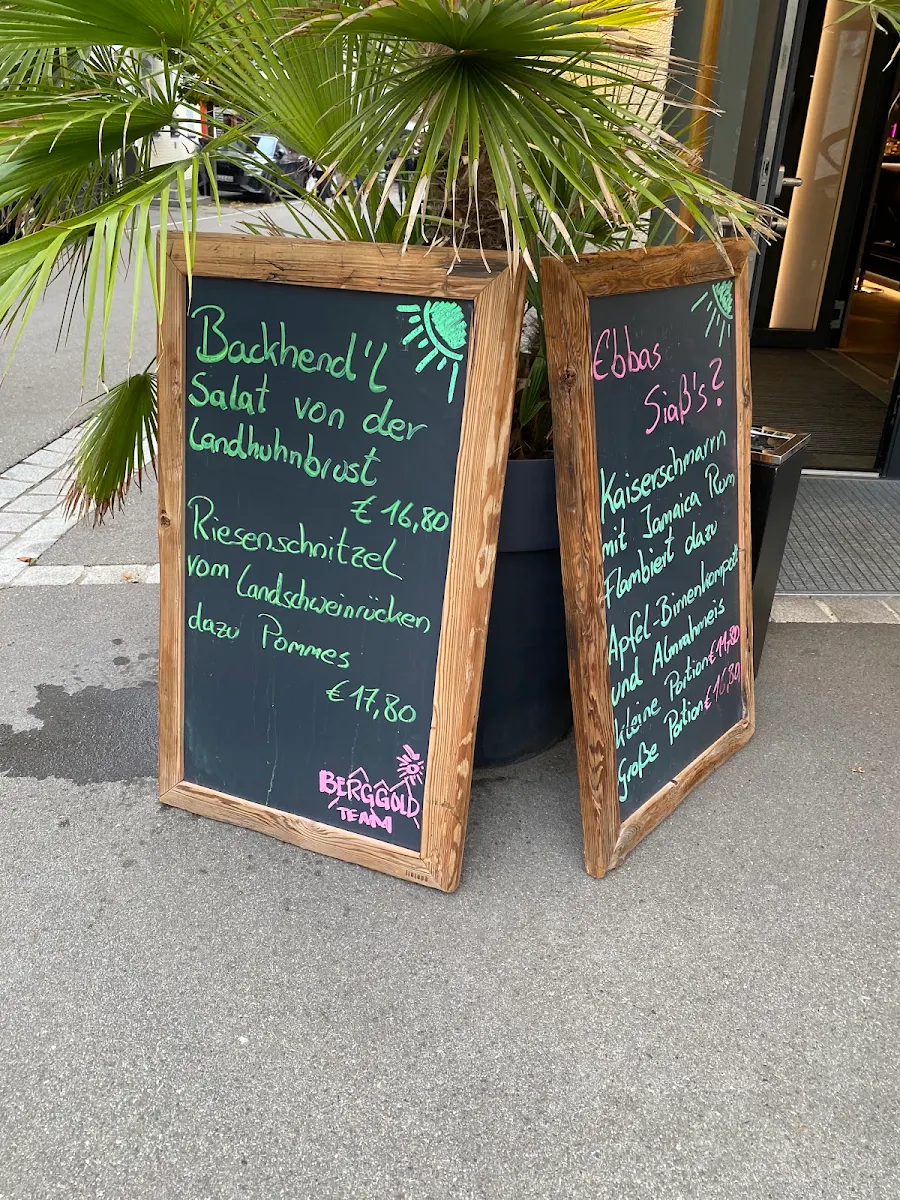 Backhend'l
Salat von der
Landhuhnbrust
€ 16,80
Riesenschnitzel
vom Landschweinrücken
dazu Pommes
€ 17,80
BERGGOLD
TEAM
Ebbas
Siaß's?
Kaiserschmarrn
mit Jamaica Rum
Flambiert dazu
Apfel-Birnenkompott
und Almrahmeis
kleine Portion € 11,80
Große Portion € 16,80